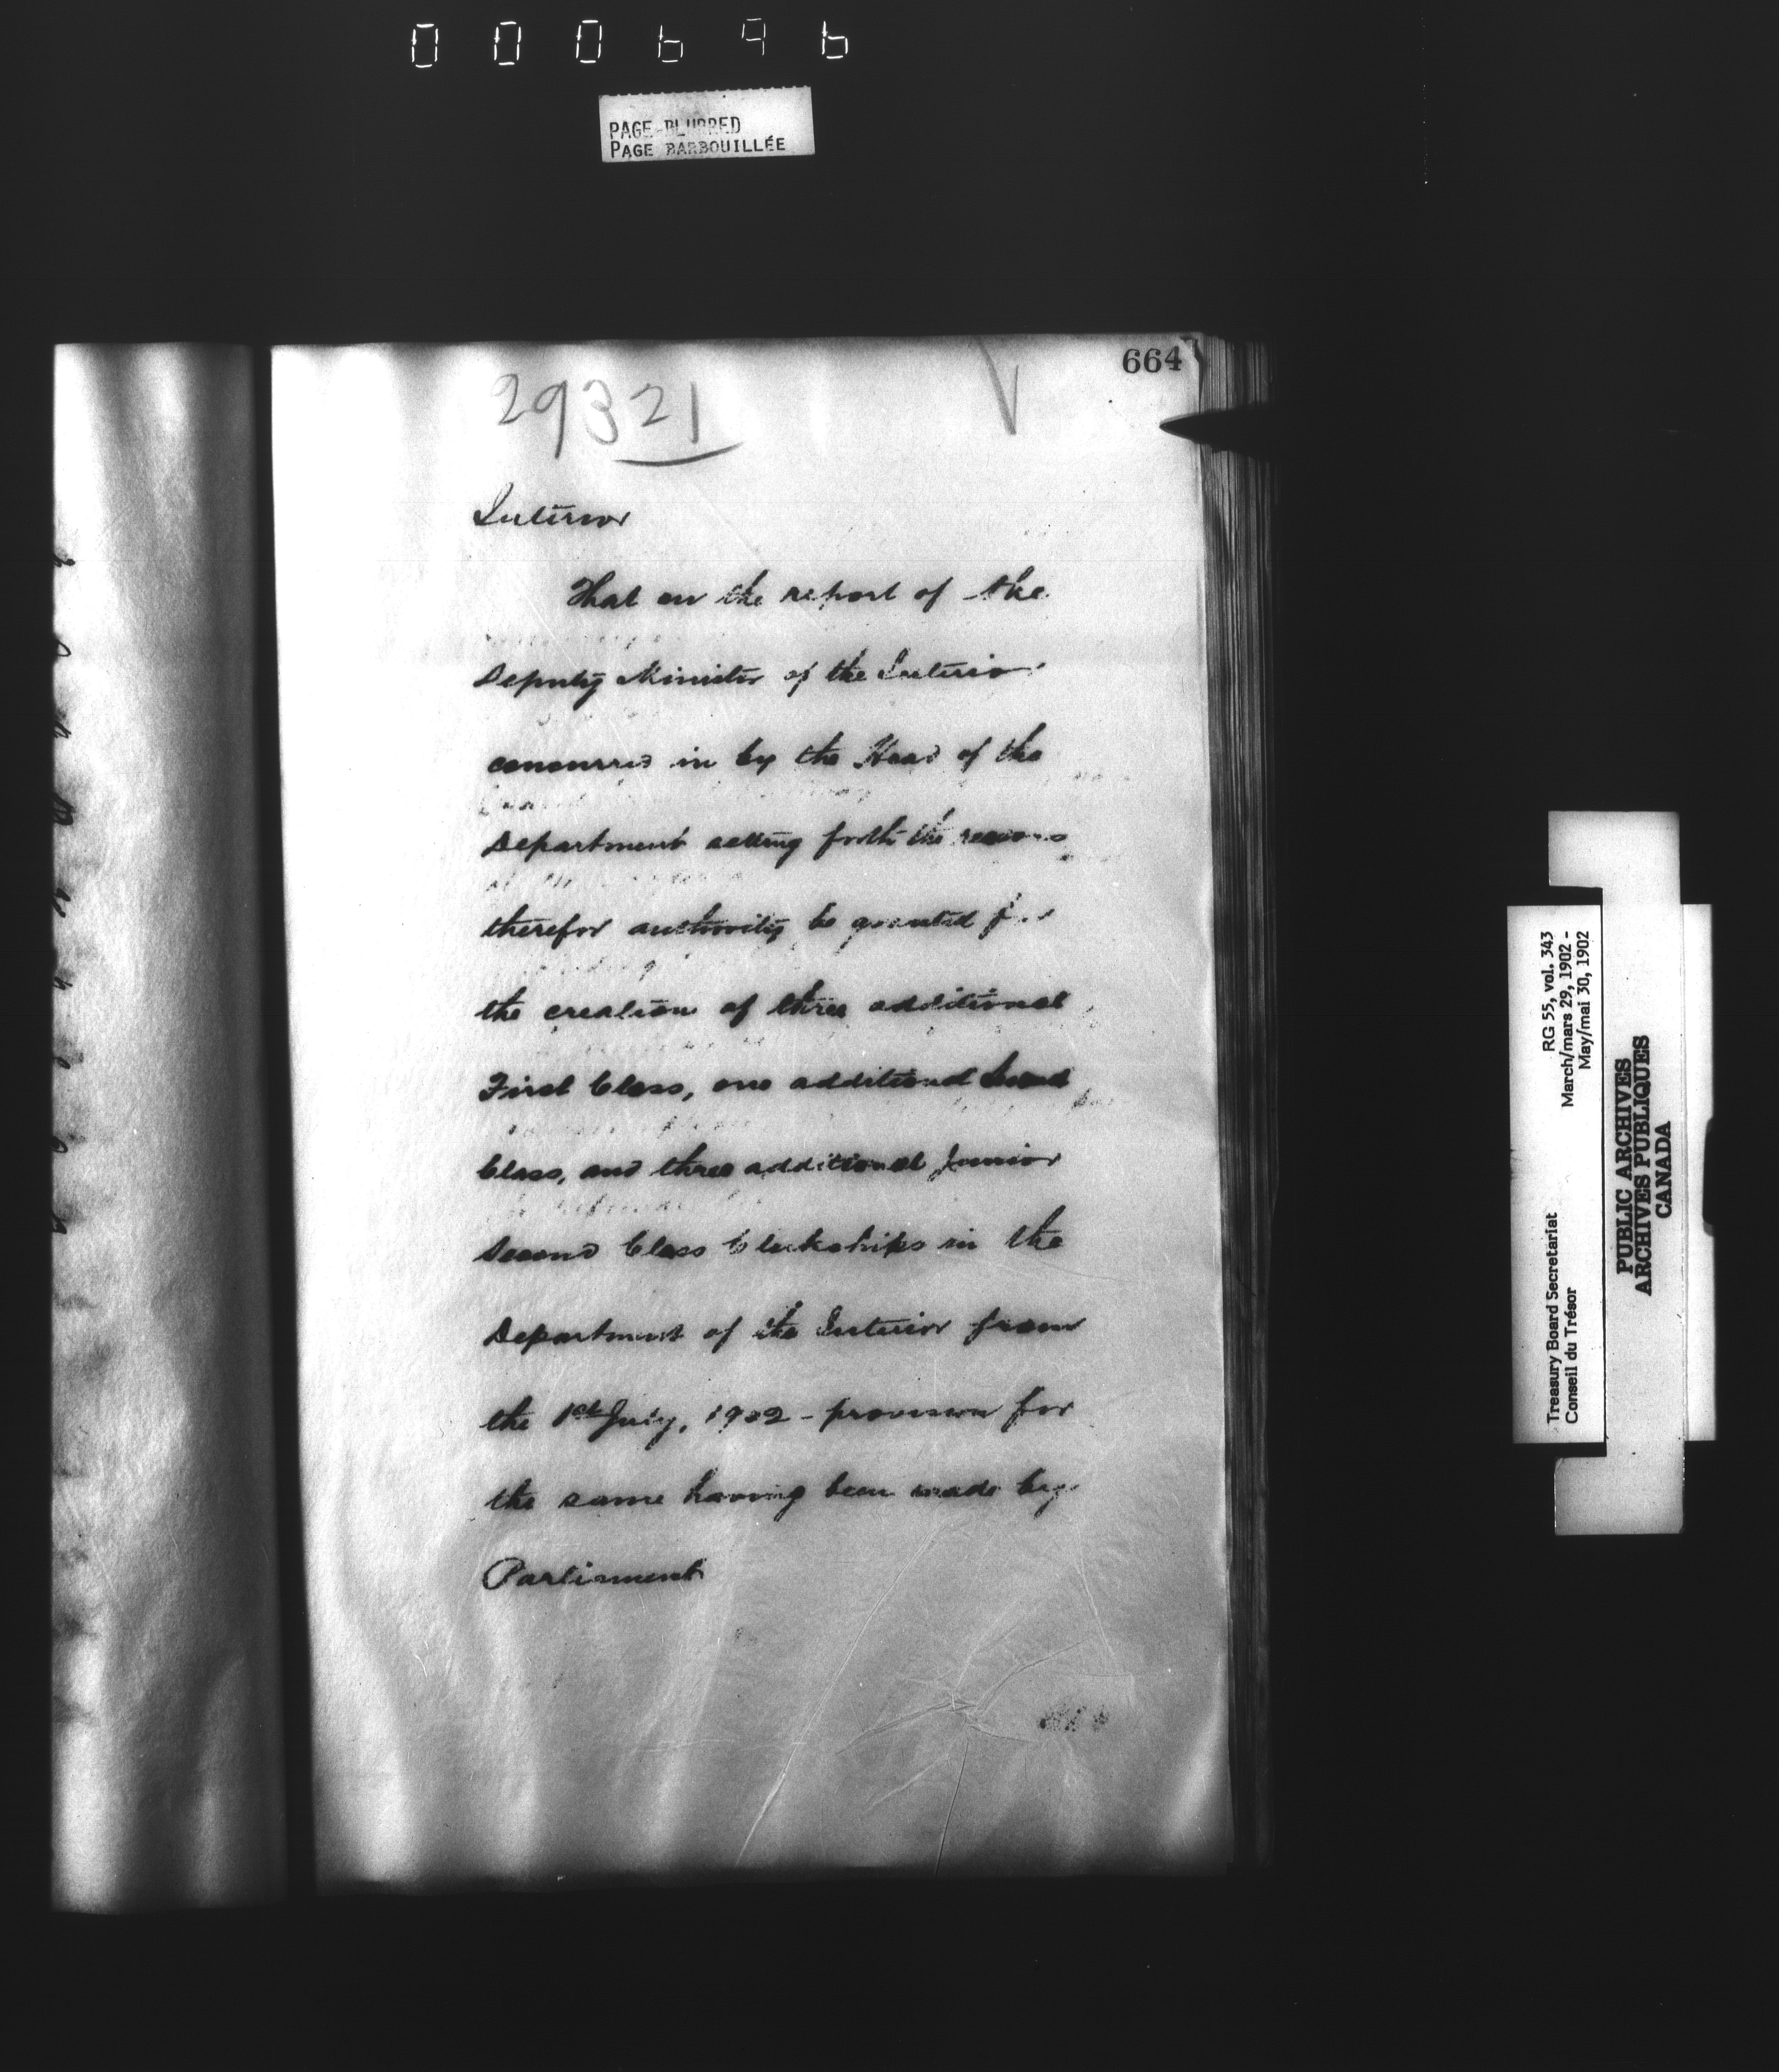 000696
PAGE BLURRED
PAGE BARBOUILLÉE
664
29321
Interior
That on the report of the
Deputy Minister of the Interior
concurred in by the Head of the
Department setting forth the reasons
therefor authority be granted for
the creation of three additional
First Class, one additional Second
Class, and three additional Junior
Second Class Clerkships in the
Department of the Interior from
the 1st July, 1902 - provision for
the same having been made by
Parliament
RG 55, vol. 343
March/mars 29, 1902 -
May/mai 30, 1902
Treasury Board Secretariat
Conseil du Trésor
PUBLIC ARCHIVES
ARCHIVES PUBLIQUES
CANADA